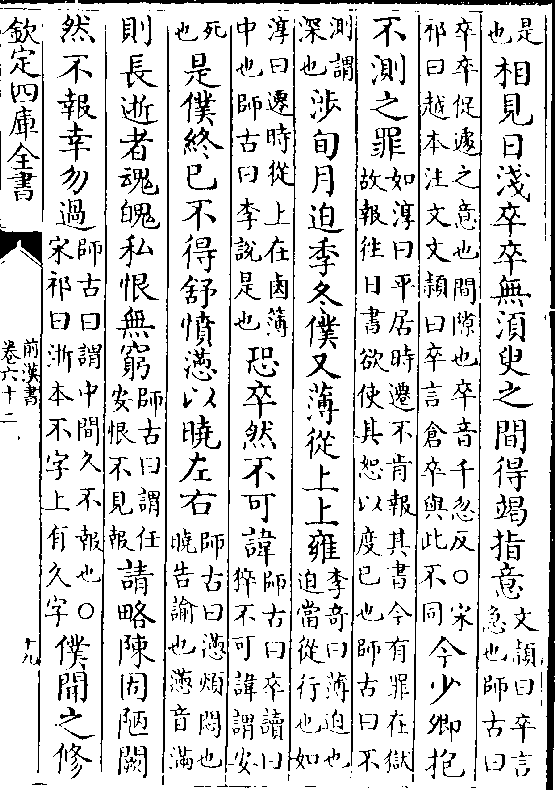 是也相見日淺卒卒無湏臾之間得竭指意文穎曰卒言急也師古曰
卒卒促遽之意也間隙也卒音千忽反○宋祁曰越本注文文穎曰卒言倉卒與此不同今少卿抱
不測之罪如淳曰平居時遷不肯報其書今有罪在獄故報往日書欲使其恕以度已也師古曰不
測謂深也涉旬月迫季冬僕又薄從上上雍李奇曰薄迫也迫當從行也如
淳曰遷時從上在鹵簿中也師古曰李說是也恐卒然不可諱師古曰卒讀曰猝不可諱謂安
死也是僕終已不得舒憤懣以曉左右師古曰懣煩悶也曉告諭也懣音滿
則長逝者魂魄私恨無窮師古曰謂任安恨不見報請略陳固陋闕
然不報幸勿過師古曰謂中間久不報也○宋祁曰浙本不字上有久字僕聞之修
欽定四庫全書
前漢書
卷六十二
十九